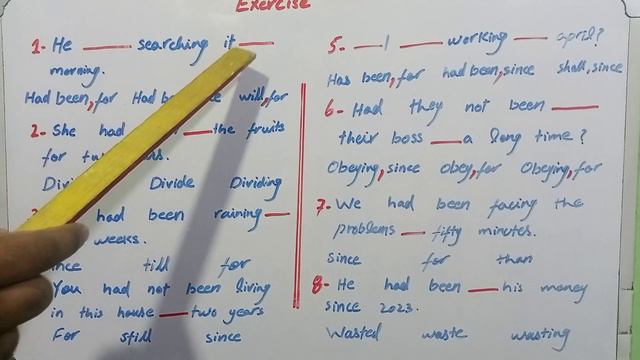 Exercise
1- He ___ searching it ___
morning.
Had been, for Had will, for
2- She had ___ the fruits
for
Divide Dividing
had been raining ___
weeks.
till for
You had not been living
in this house ___ two years
For still since
5. ___ I ___ working ___ april?
Has been, for had been, since shall, since
6- Had they not been ___
their boss ___ a long time?
Obeying, since obey, for Obeying, for
7- We had been facing the
problems ___ fifty minutes.
since for than
8- He had been ___ his money
since 2023.
Wasted waste wasting